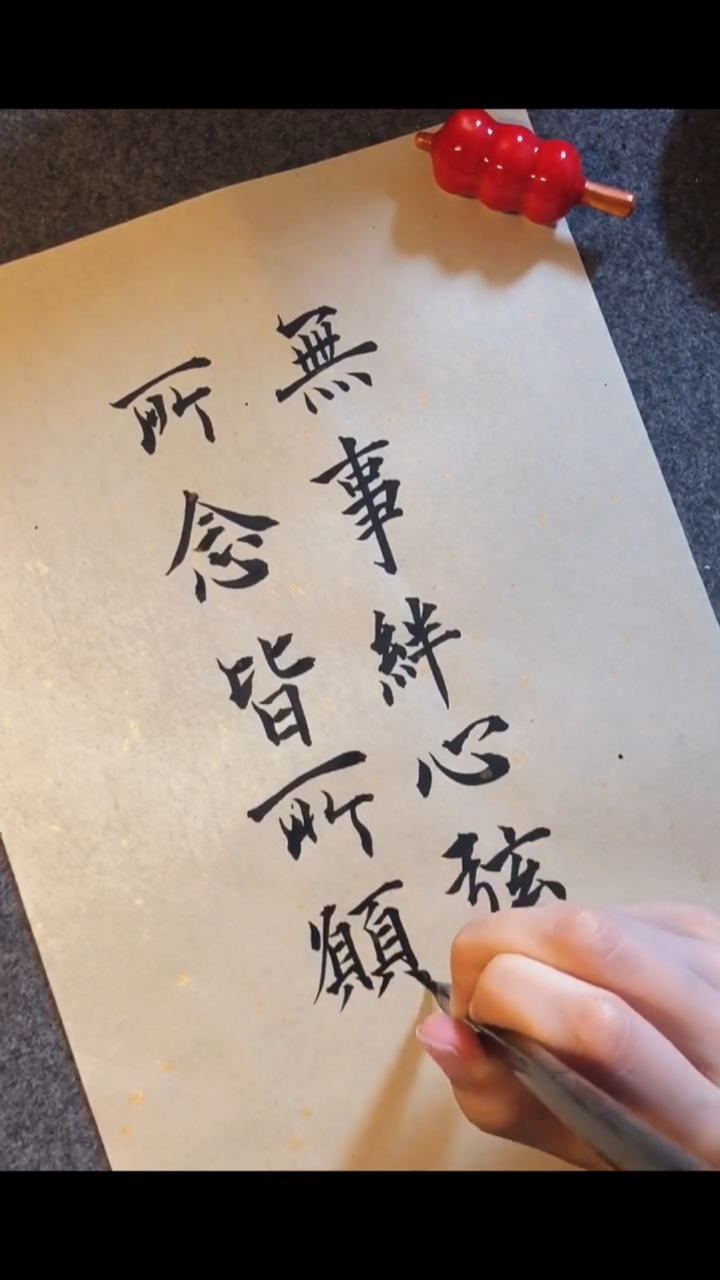 無事絆心弦
所念皆所願